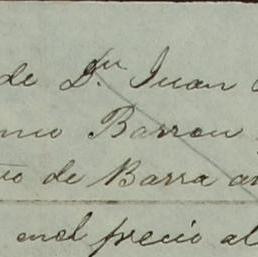 de D.n Juan
Barron
de Barra
en el precio al